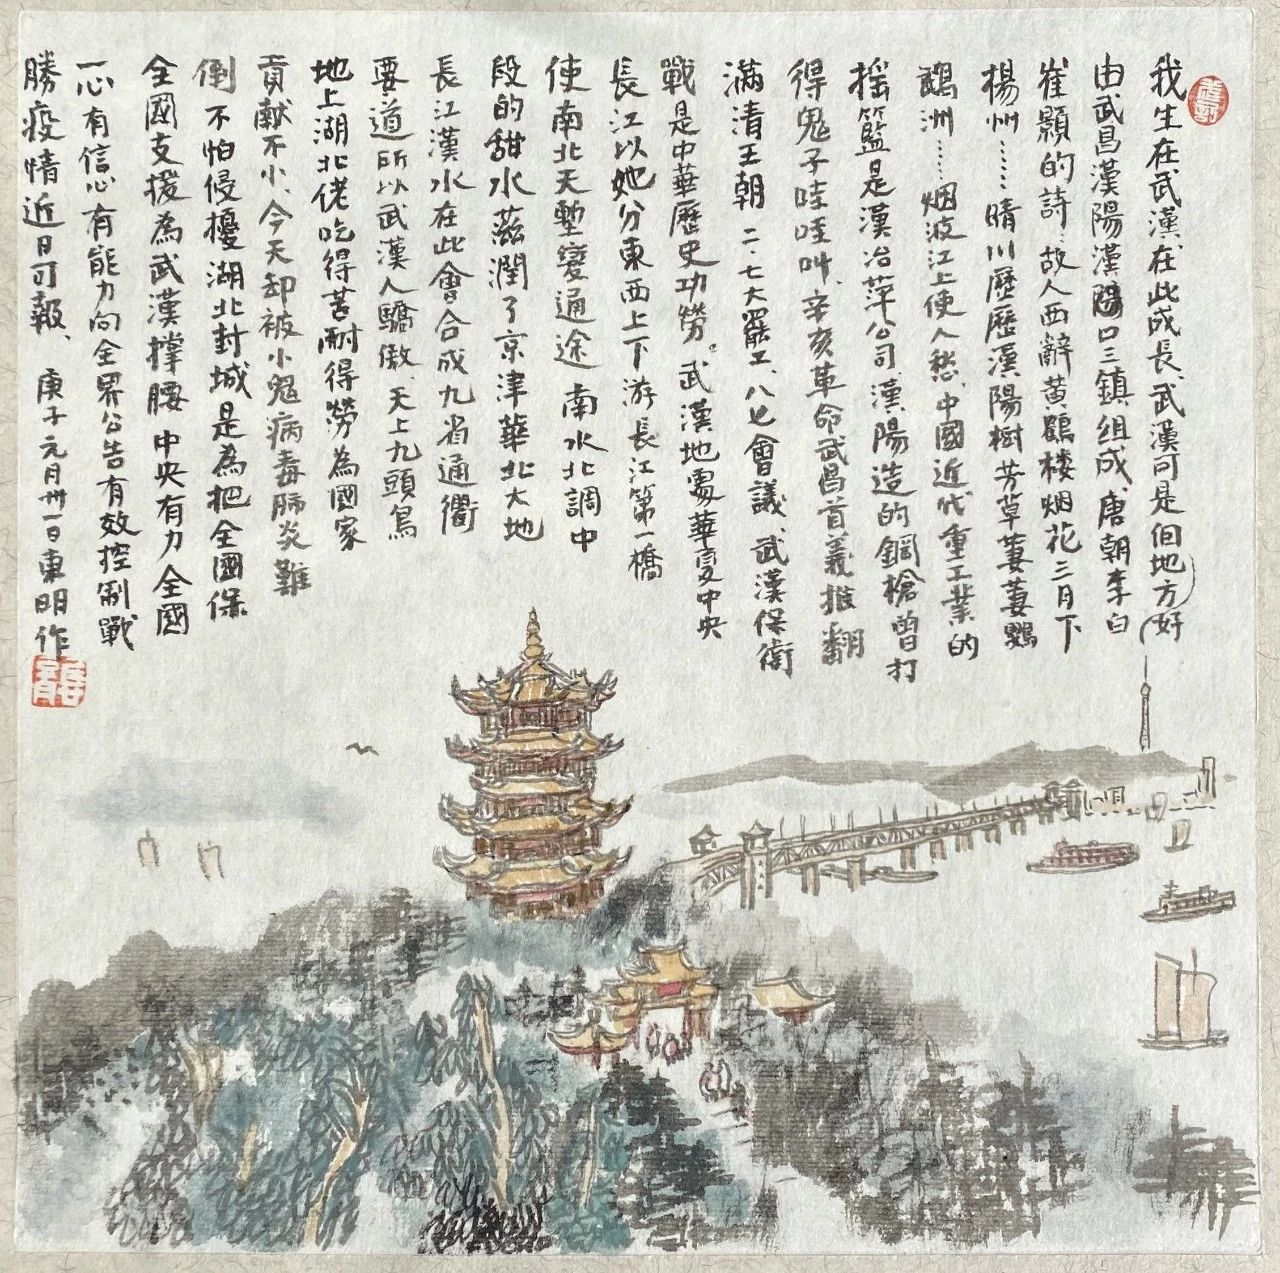 我生在武漢、在此成長、武漢可是個地方好
由武昌漢陽漢陽口三鎮組成、唐朝李白
崔顥的詩：故人西辭黄鶴楼烟花三月下
楊州……晴川歷歷漢陽樹芳草萋萋鸚
鵡洲……烟波江上使人愁、中國近代重工業的
摇籃是漢冶萍公司、漢陽造的鋼槍曾打
得鬼子哇哇叫、辛亥革命武昌首義推翻
滿清王朝 二.七大罷工、八七會議、武漢保衛
戰是中華歷史功勞。武漢地處華夏中央
長江以她分東西上下游長江第一橋
使南北天塹變通途 南水北調中
段的甜水滋潤了京津華北大地
長江漢水在此會合成九省通衢
要道所以武漢人驕傲、天上九頭鳥
地上湖北佬吃得苦耐得勞為國家
貢献不小、今天却被小鬼病毒肺炎難
倒 不怕侵擾湖北封城是為把全國保
全國支援為武漢撑腰 中央有力全國
一心有信心有能力向全界公告有效控制戰
勝疫情近日可報、 庚子元月卅一日東明作